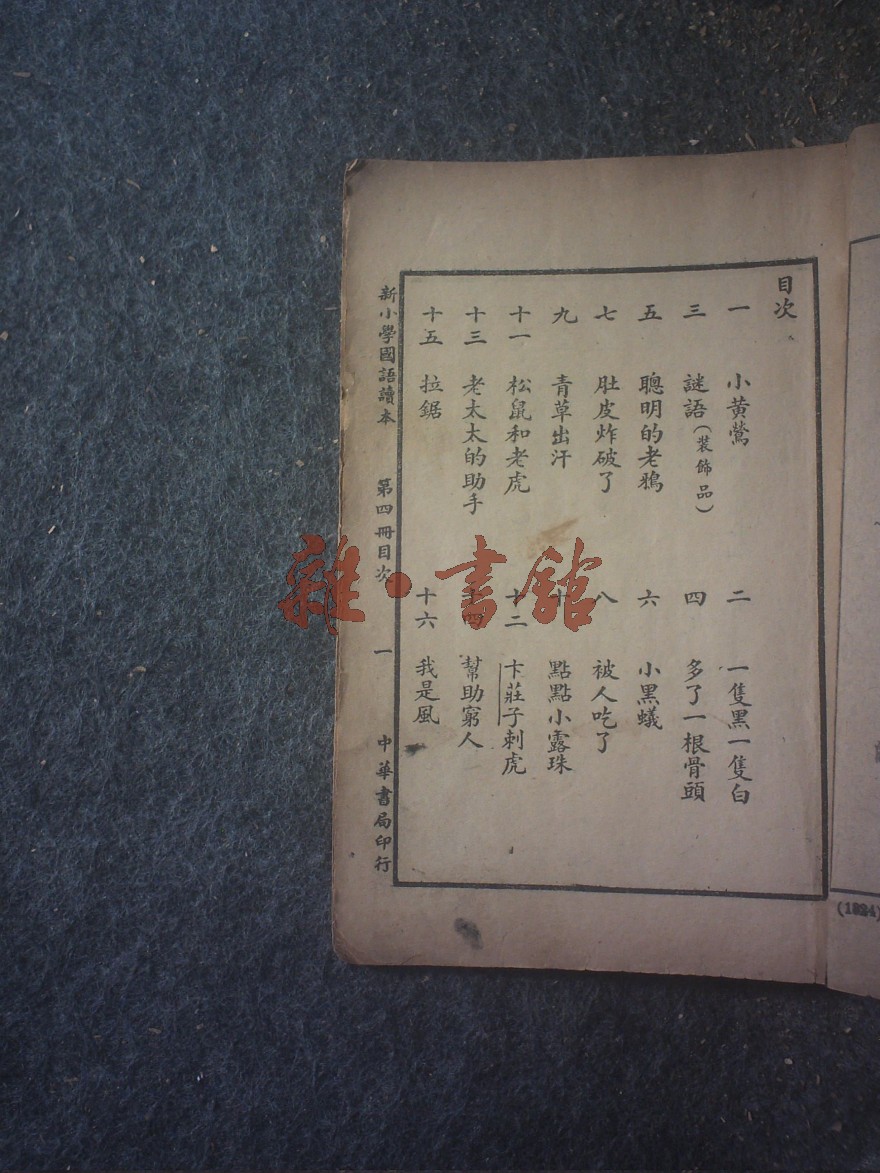 目次
一 小黃鶯
二 一隻黑一隻白
三 謎語(裝飾品)
四 多了一根骨頭
五 聰明的老鴉
六 小黑蟻
七 肚皮炸破了
八 被人吃了
九 青草出汗
十 點點小露珠
十一 松鼠和老虎
十二 卞莊子刺虎
十三 老太太的助手
十四 幫助窮人
十五 拉鋸
十六 我是風
新小學國語讀本 第四冊目次 一 中華書局印行
雜·書館